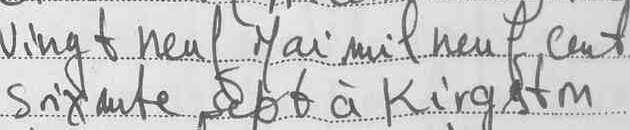 Vingt neuf Mai mil neuf cent
soixante sept à Kingston